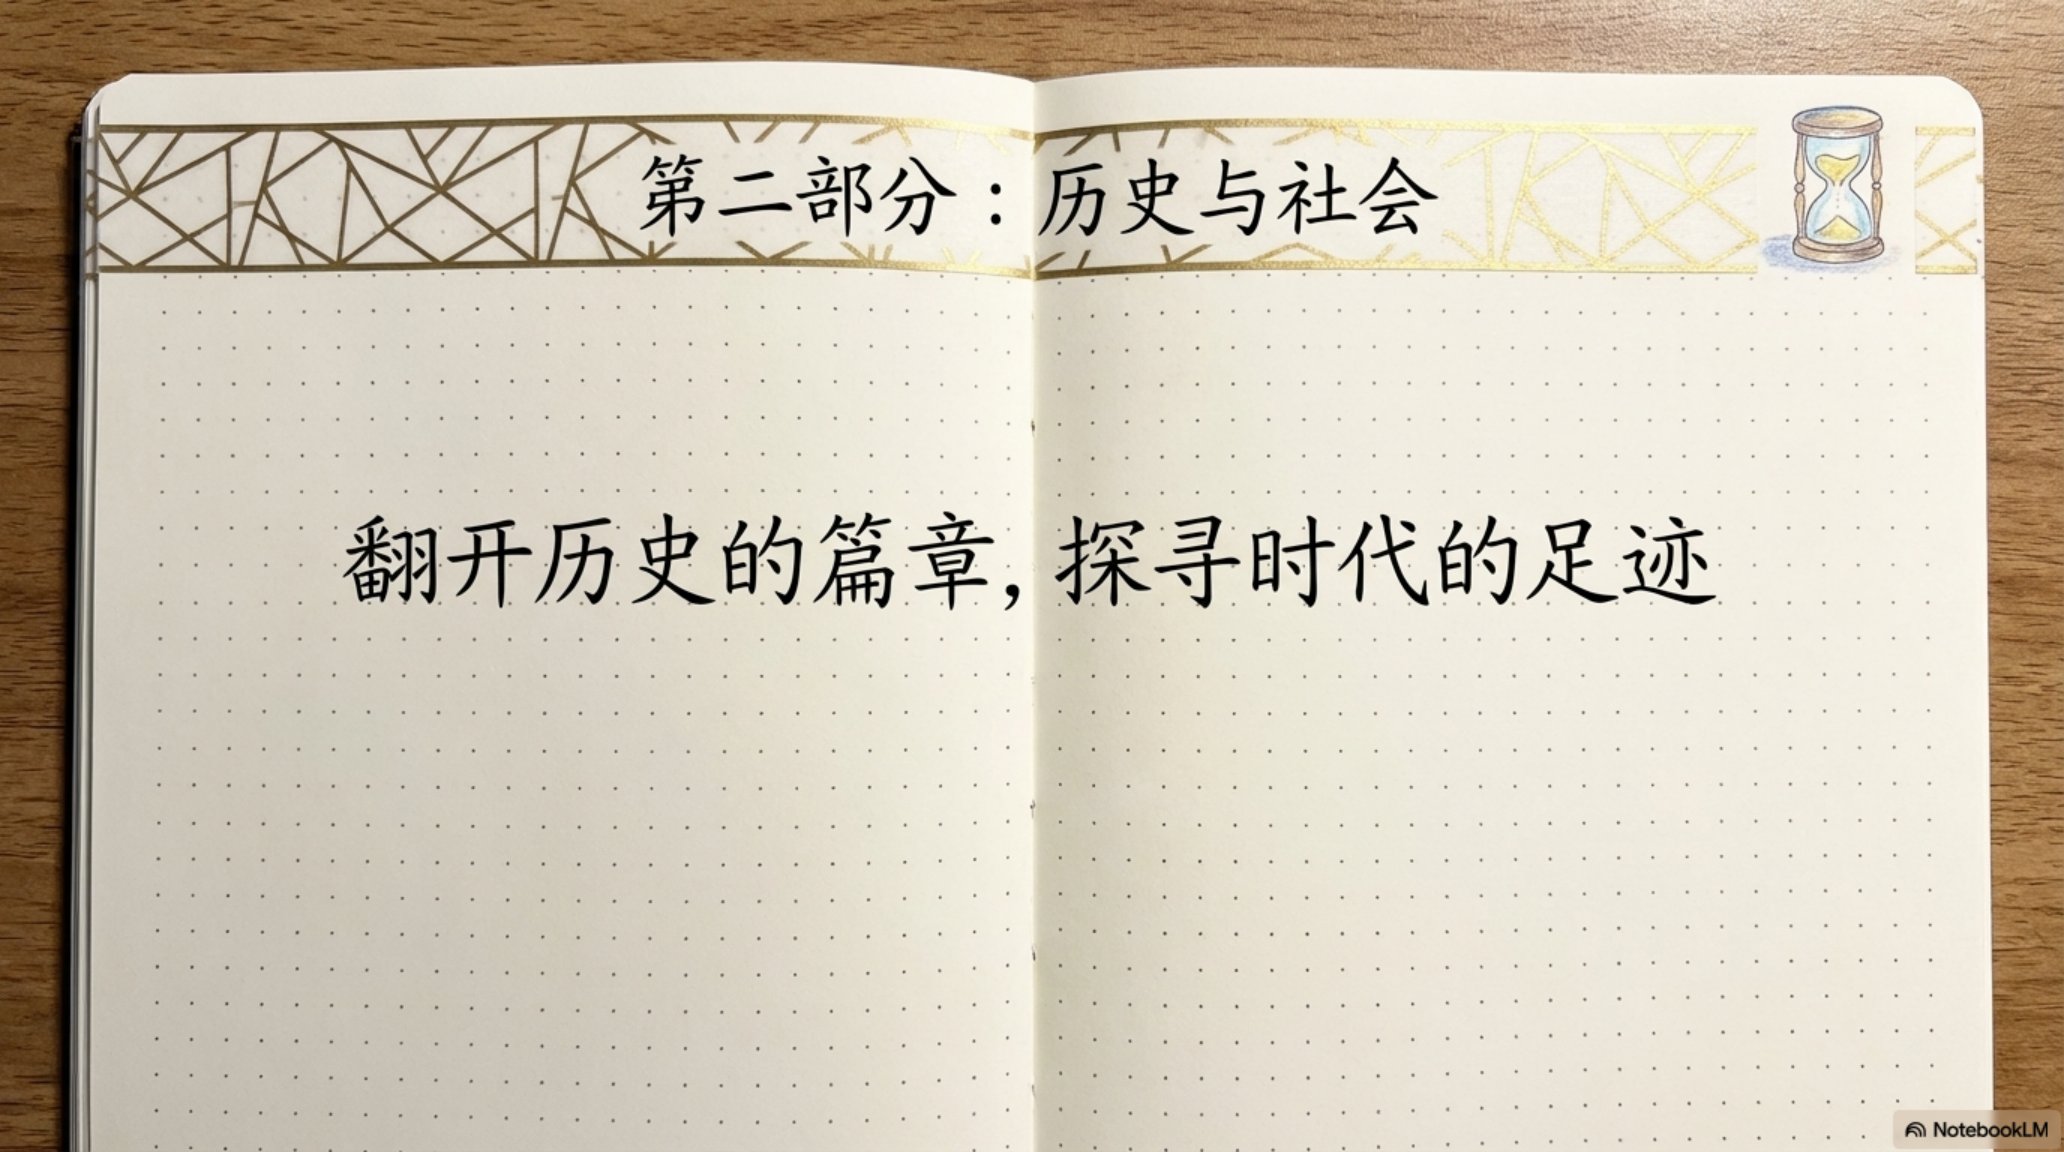 第二部分：历史与社会
翻开历史的篇章，探寻时代的足迹
NotebookLM